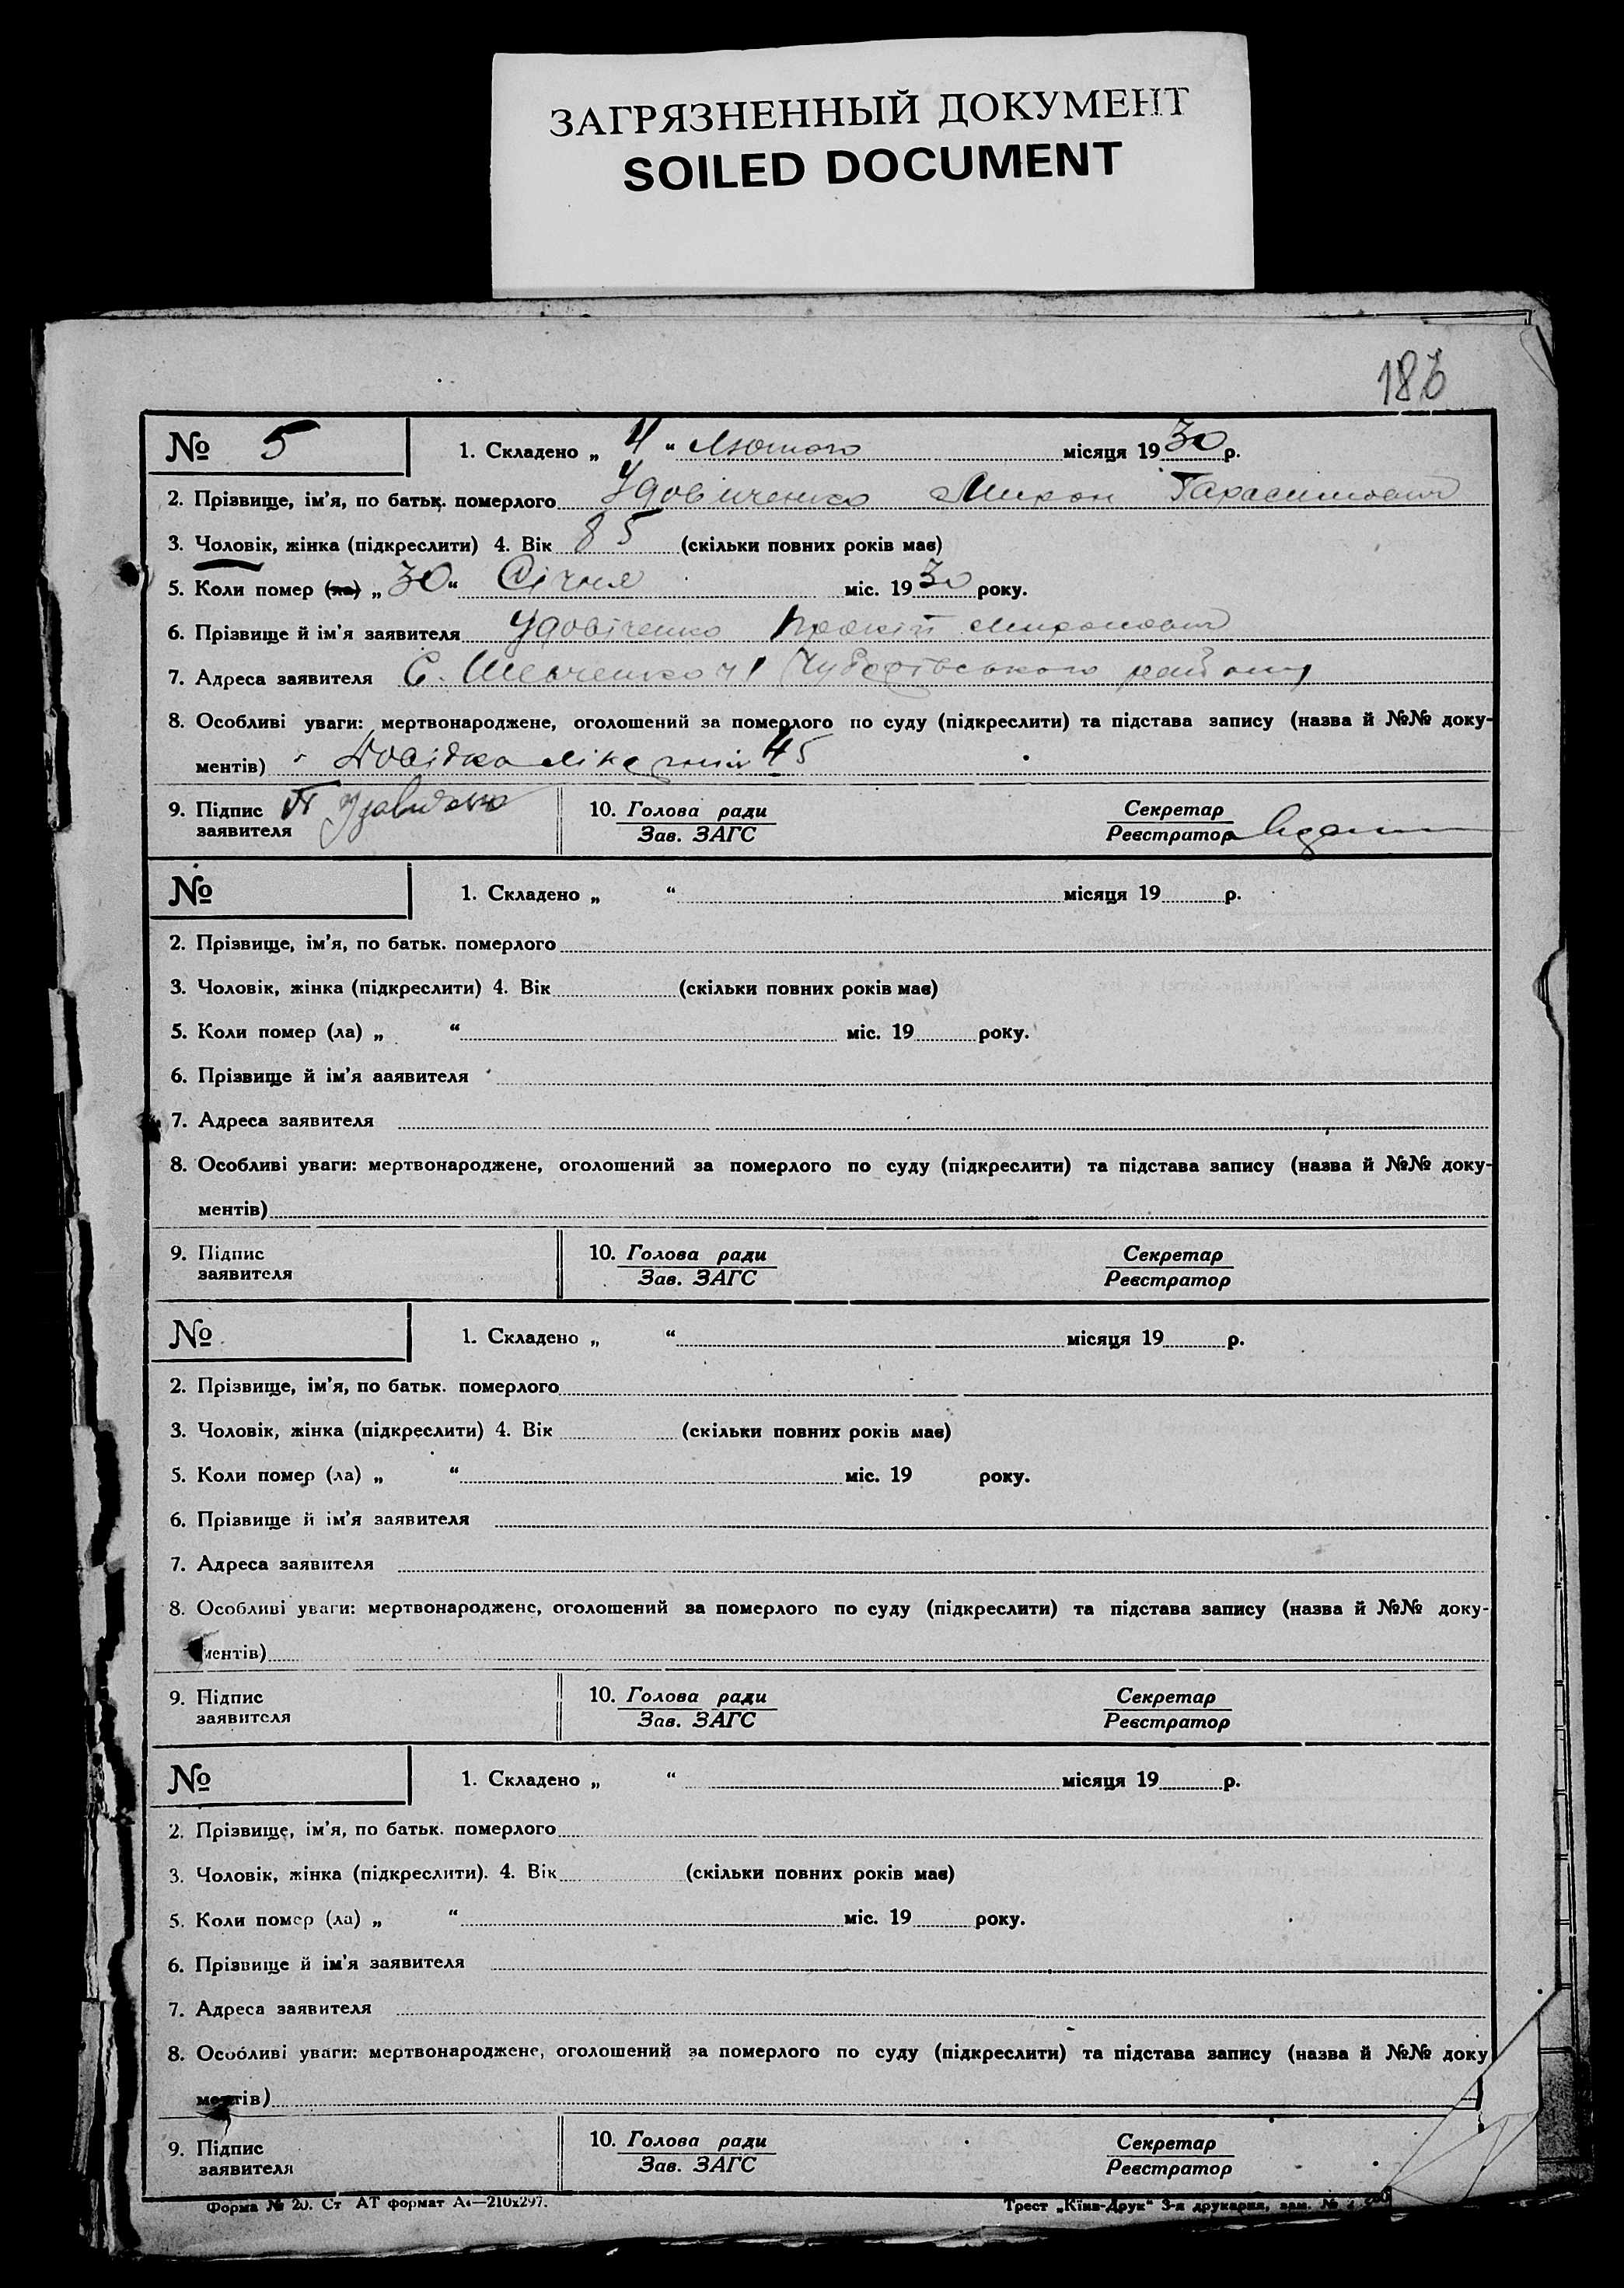 ЗАГРЯЗНЕННЫЙ ДОКУМЕНТ
SOILED DOCUMENT
186
№ 5 1. Складено „ 4 “ Лютого місяця 1930 р.
2. Прізвище, ім'я, по батьк. померлого Удовіченко Мирон Тарасимович
3. Чоловік, жінка (підкреслити) 4. Вік 85 (скільки повних років має)
5. Коли помер (ла) „ 30 “ Січня міс. 1930 року.
6. Прізвище й ім'я заявителя Удовіченко Миронович
7. Адреса заявителя С. району
8. Особливі уваги: мертвонароджене, оголошений за померлого по суду (підкреслити) та підстава запису (назва й №№ доку-
ментів) Довідка 45
9. Підпис 10. Голова ради Секретар
заявителя Зав. ЗАГС Реєстратор
№ 1. Складено „ “ місяця 19 р.
2. Прізвище, ім'я, по батьк. померлого
3. Чоловік, жінка (підкреслити) 4. Вік (скільки повних років має)
5. Коли помер (ла) „ “ міс. 19 року.
6. Прізвище й ім'я ааявителя
7. Адреса заявителя
8. Особливі уваги: мертвонароджене, оголошений за померлого по суду (підкреслити) та підстава запису (назва й №№ доку-
ментів)
9. Підпис 10. Голова ради Секретар
заявителя Зав. ЗАГС Реєстратор
№ 1. Складено „ “ місяця 19 р.
2. Прізвище, ім'я, по батьк. померлого
3. Чоловік, жінка (підкреслити) 4. Вік (скільки повних років має)
5. Коли помер (ла) „ “ міс. 19 року.
6. Прізвище й ім'я заявителя
7. Адреса заявителя
8. Особливі уваги: мертвонароджене, оголошений за померлого по суду (підкреслити) та підстава запису (назва й №№ доку-
ментів)
9. Підпис 10. Голова ради Секретар
заявителя Зав. ЗАГС Реєстратор
№ 1. Складено „ “ місяця 19 р.
2. Прізвище, ім'я, по батьк. померлого
3. Чоловік, жінка (підкреслити). 4. Вік (скільки повних років має)
5. Коли помер (ла) „ “ міс. 19 року.
6. Прізвище й ім'я заявителя
7. Адреса заявителя
8. Особливі уваги: мертвонароджене, оголошений за померлого по суду (підкреслити) та підстава запису (назва й №№ доку
ментів)
9. Підпис 10. Голова ради Секретар
заявителя Зав. ЗАГС Реєстратор
Форма № 20. Ст АТ формат А4—210х297. Трест „Київ-Друк“ 3-я друкарня, зам. №